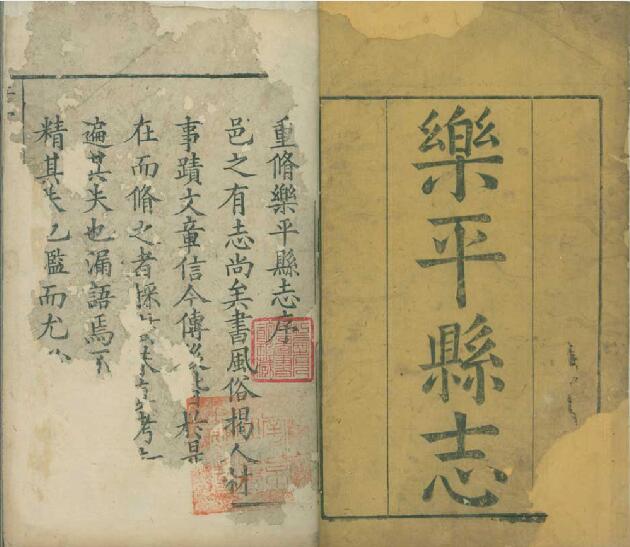 樂平縣志
重脩樂平縣志序
邑之有志尚矣書風俗揭人材
事蹟文章信今傳於是
在而脩之者採考
遍其失也漏語焉不
精其失也濫而尤